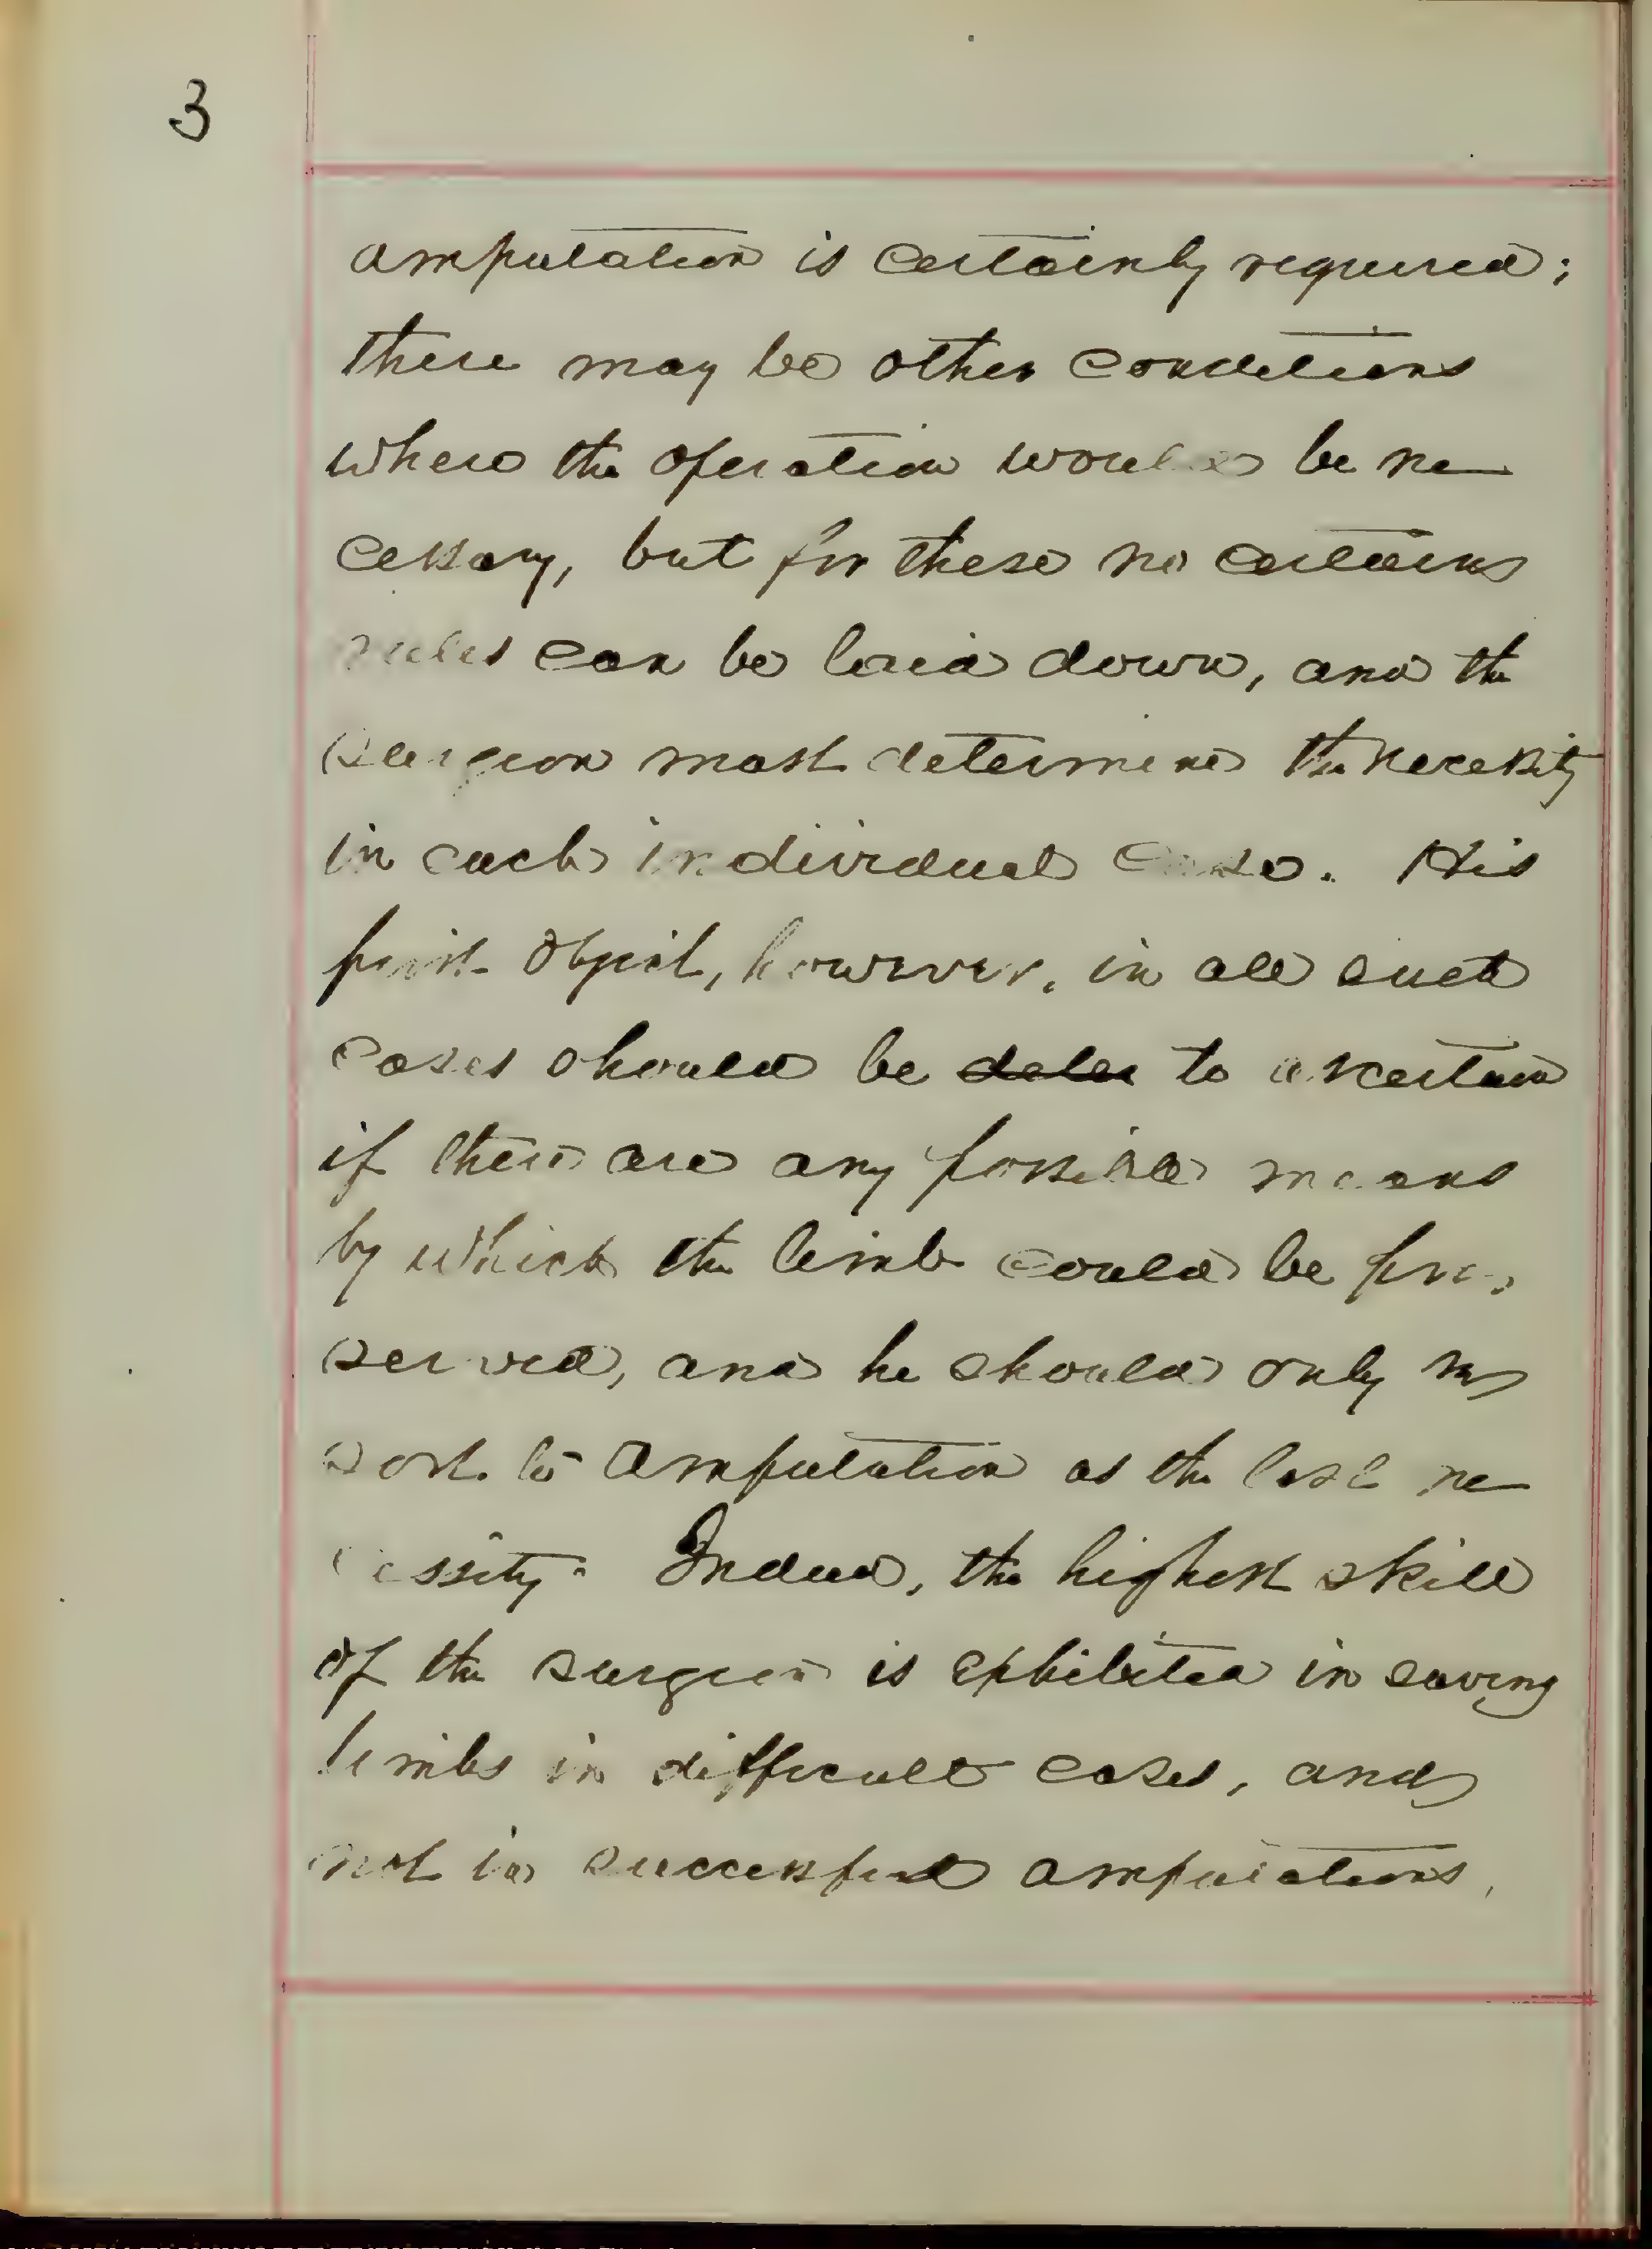 3
amputation is certainly required;
there may be other conditions
where the operation would be ne
cessary, but for these no certain
rules can be laid down, and the
surgeon must determine the necessity
in each individual case. His
first object, however, in all such
cases should be to ascertain
if there are any possible means
by which the limb could be pre-
served, and he should only re
sort to amputation as the last ne
cessity. Indeed, the highest skill
of the surgeon is exhibited in saving
limbs in difficult cases, and
not in successful amputations.